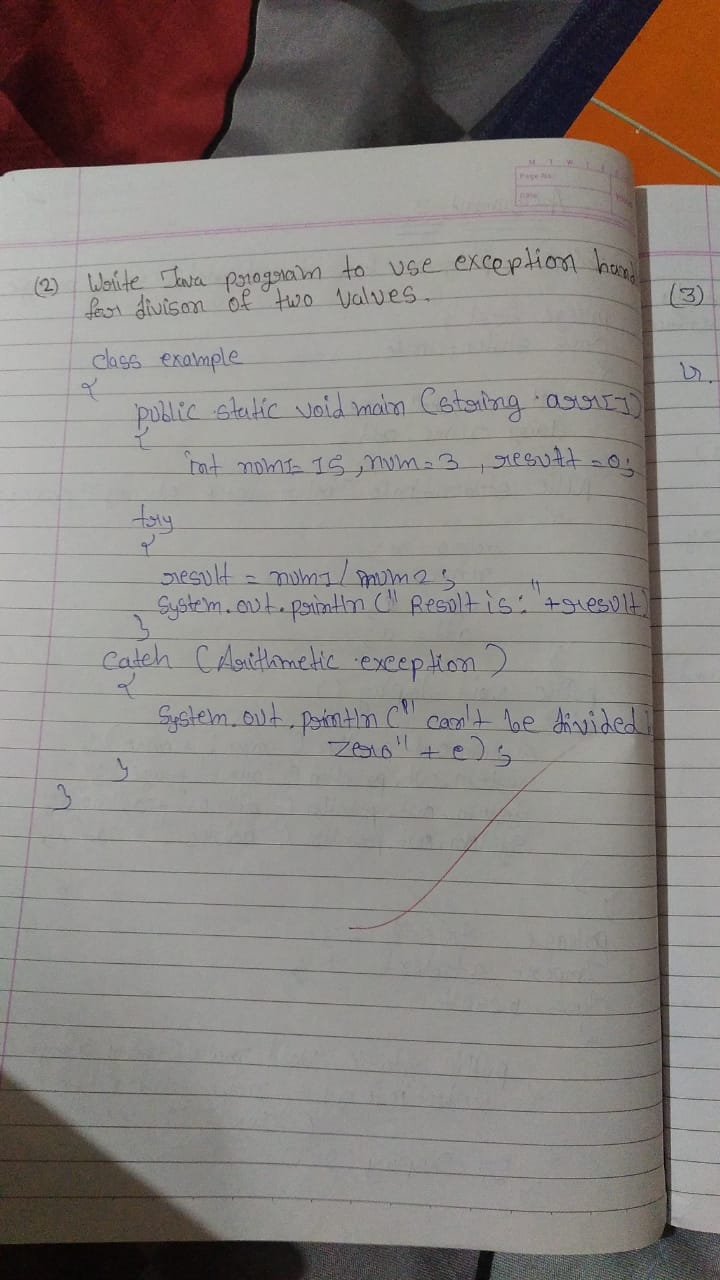 M T W
Page No.
Date
(2) Write Java program to use exception hand
for divison of two values.
class example
{
public static void main (string arr[])
{
int nom1= 15, num = 3, result = 0;
try
{
result = num1 / num2;
System.out.println (" Result is: "+result)
}
catch (Arithmetic exception)
{
System.out.println (" can't be divided
zero" + e);
}
}
(3)